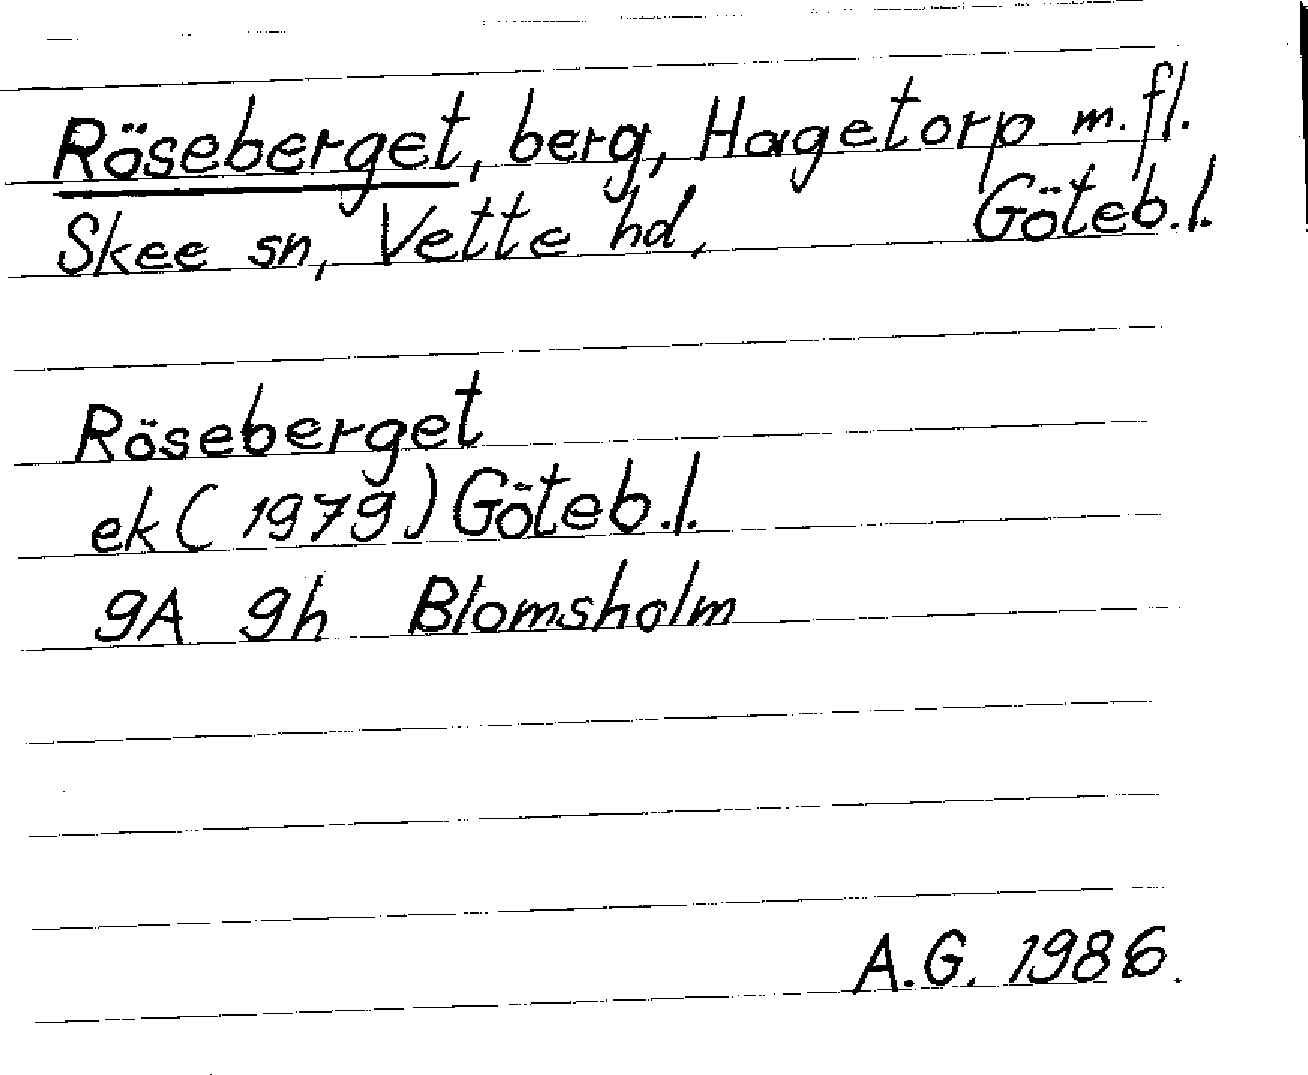 Röseberget, berg, Hagetorp m.fl.
Skee sn, Vette hd, Göteb.l.
Röseberget
ek (1979) Göteb.l.
9A 9h Blomsholm
A.G. 1986.